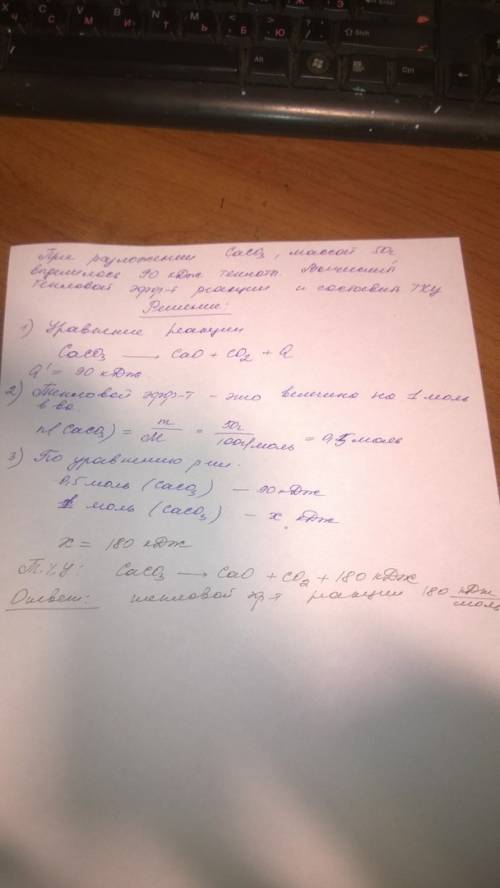 При разложении CaCO₃, массой 50г
выделилось 90 кДж теплоты. Вычислить
тепловой эфф-т реакции и составить ТХУ
Решение:
1) Уравнение реакции
CaCO₃ → CaO + CO₂ + Q
Q' = 90 кДж.
2) Тепловой эфф-т - это величина на 1 моль
в-ва
n(CaCO₃) = m/M = 50г/100г/моль = 0,5 моль
3) По уравнению р-ии.
0,5 моль (CaCO₃) — 90 кДж
1 моль (CaCO₃) — x кДж
x = 180 кДж
Т.Х.У: CaCO₃ → CaO + CO₂ + 180 кДж
Ответ: тепловой эф-т реакции 180 кДж/моль